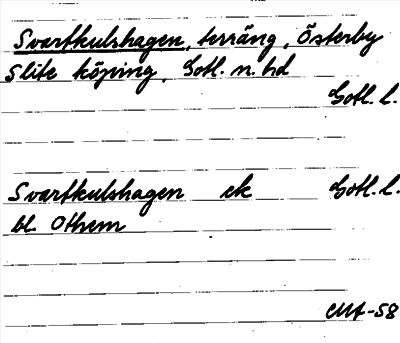 Svartkulshagen, terräng, Österby
Slite köping, Gotl. n. hd
Gotl. l.
Svartkulshagen ek Gotl. l.
bl. Othem